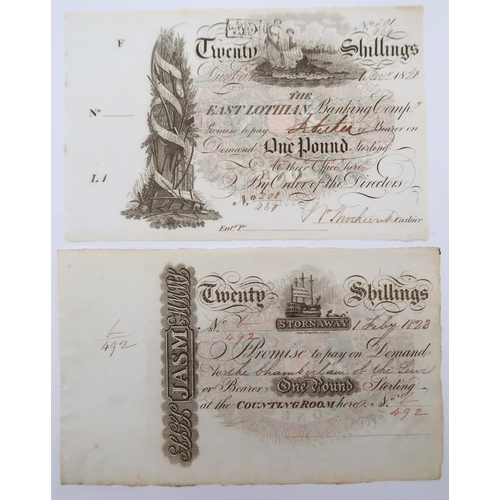 EAST
LOTHIAN
BANK
F
Twenty Shillings
Dunbar 1821
THE
Nº
EAST LOTHIAN Banking Compy
Promise to pay or Bearer on
Demand One Pound Sterling
L1
at their Office here
By Order of the Directors
Nº
Cashier
Entd. Pr.
Twenty Shillings
STORNAWAY
Nº 492 1 Feby 1823
JASM
492
I Promise to pay on Demand
To the Chamberlain of the Lews
or Bearer One Pound Sterling
at the COUNTING ROOM here Nº
492